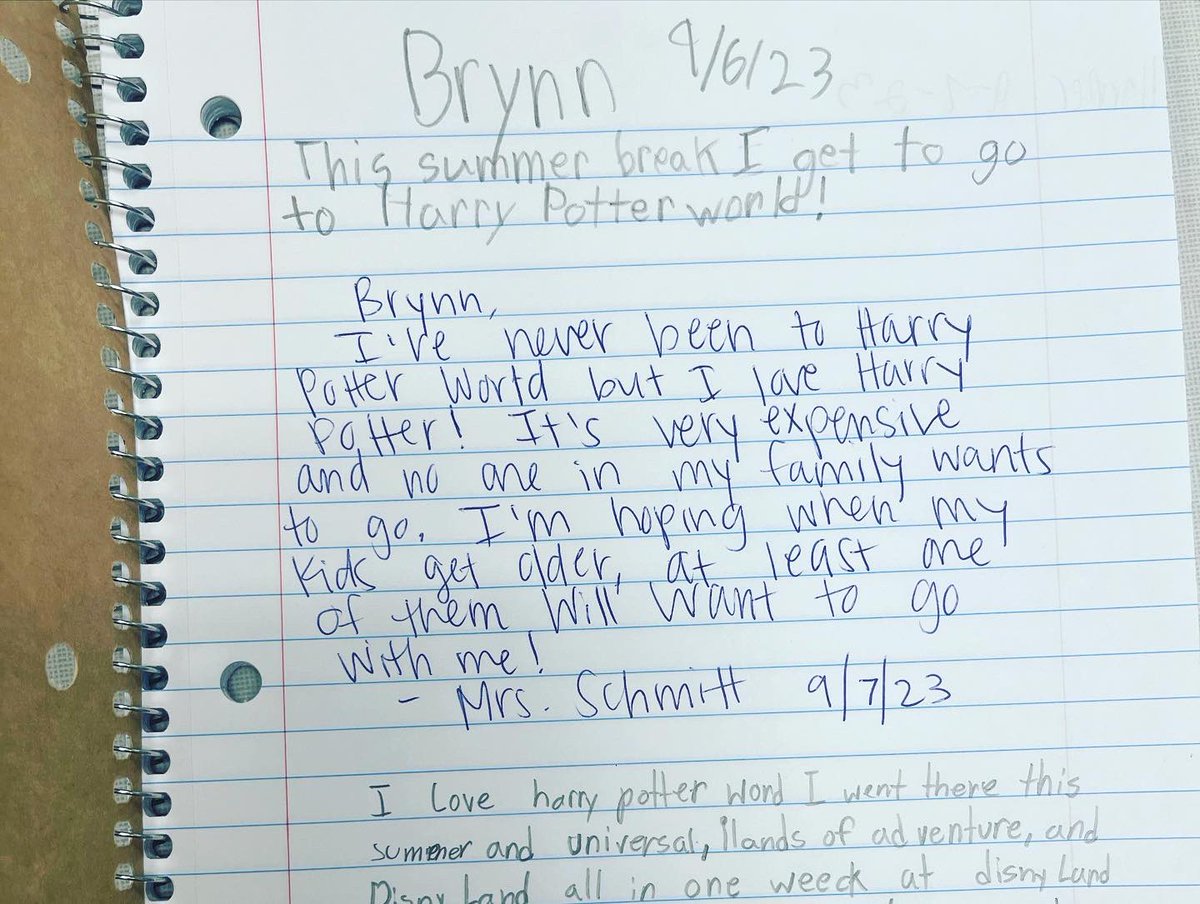 Brynn 9/6/23
This summer break I get to go
to Harry Potter world!
Brynn,
I've never been to Harry
Potter World but I love Harry
Potter! It's very expensive
and no one in my family wants
to go. I'm hoping when my
kids get older, at least one
of them will want to go
with me!
- Mrs. Schmitt 9/7/23
I love harry potter word I went there this
summer and universal, Ilands of adventure, and
Disny Land all in one weeck at disny Land